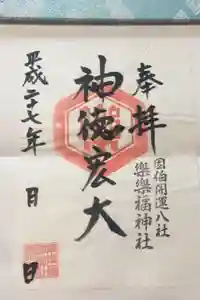 奉拝
因伯開運八社
樂樂福神社
神徳宏大
平成二十七年 月 日